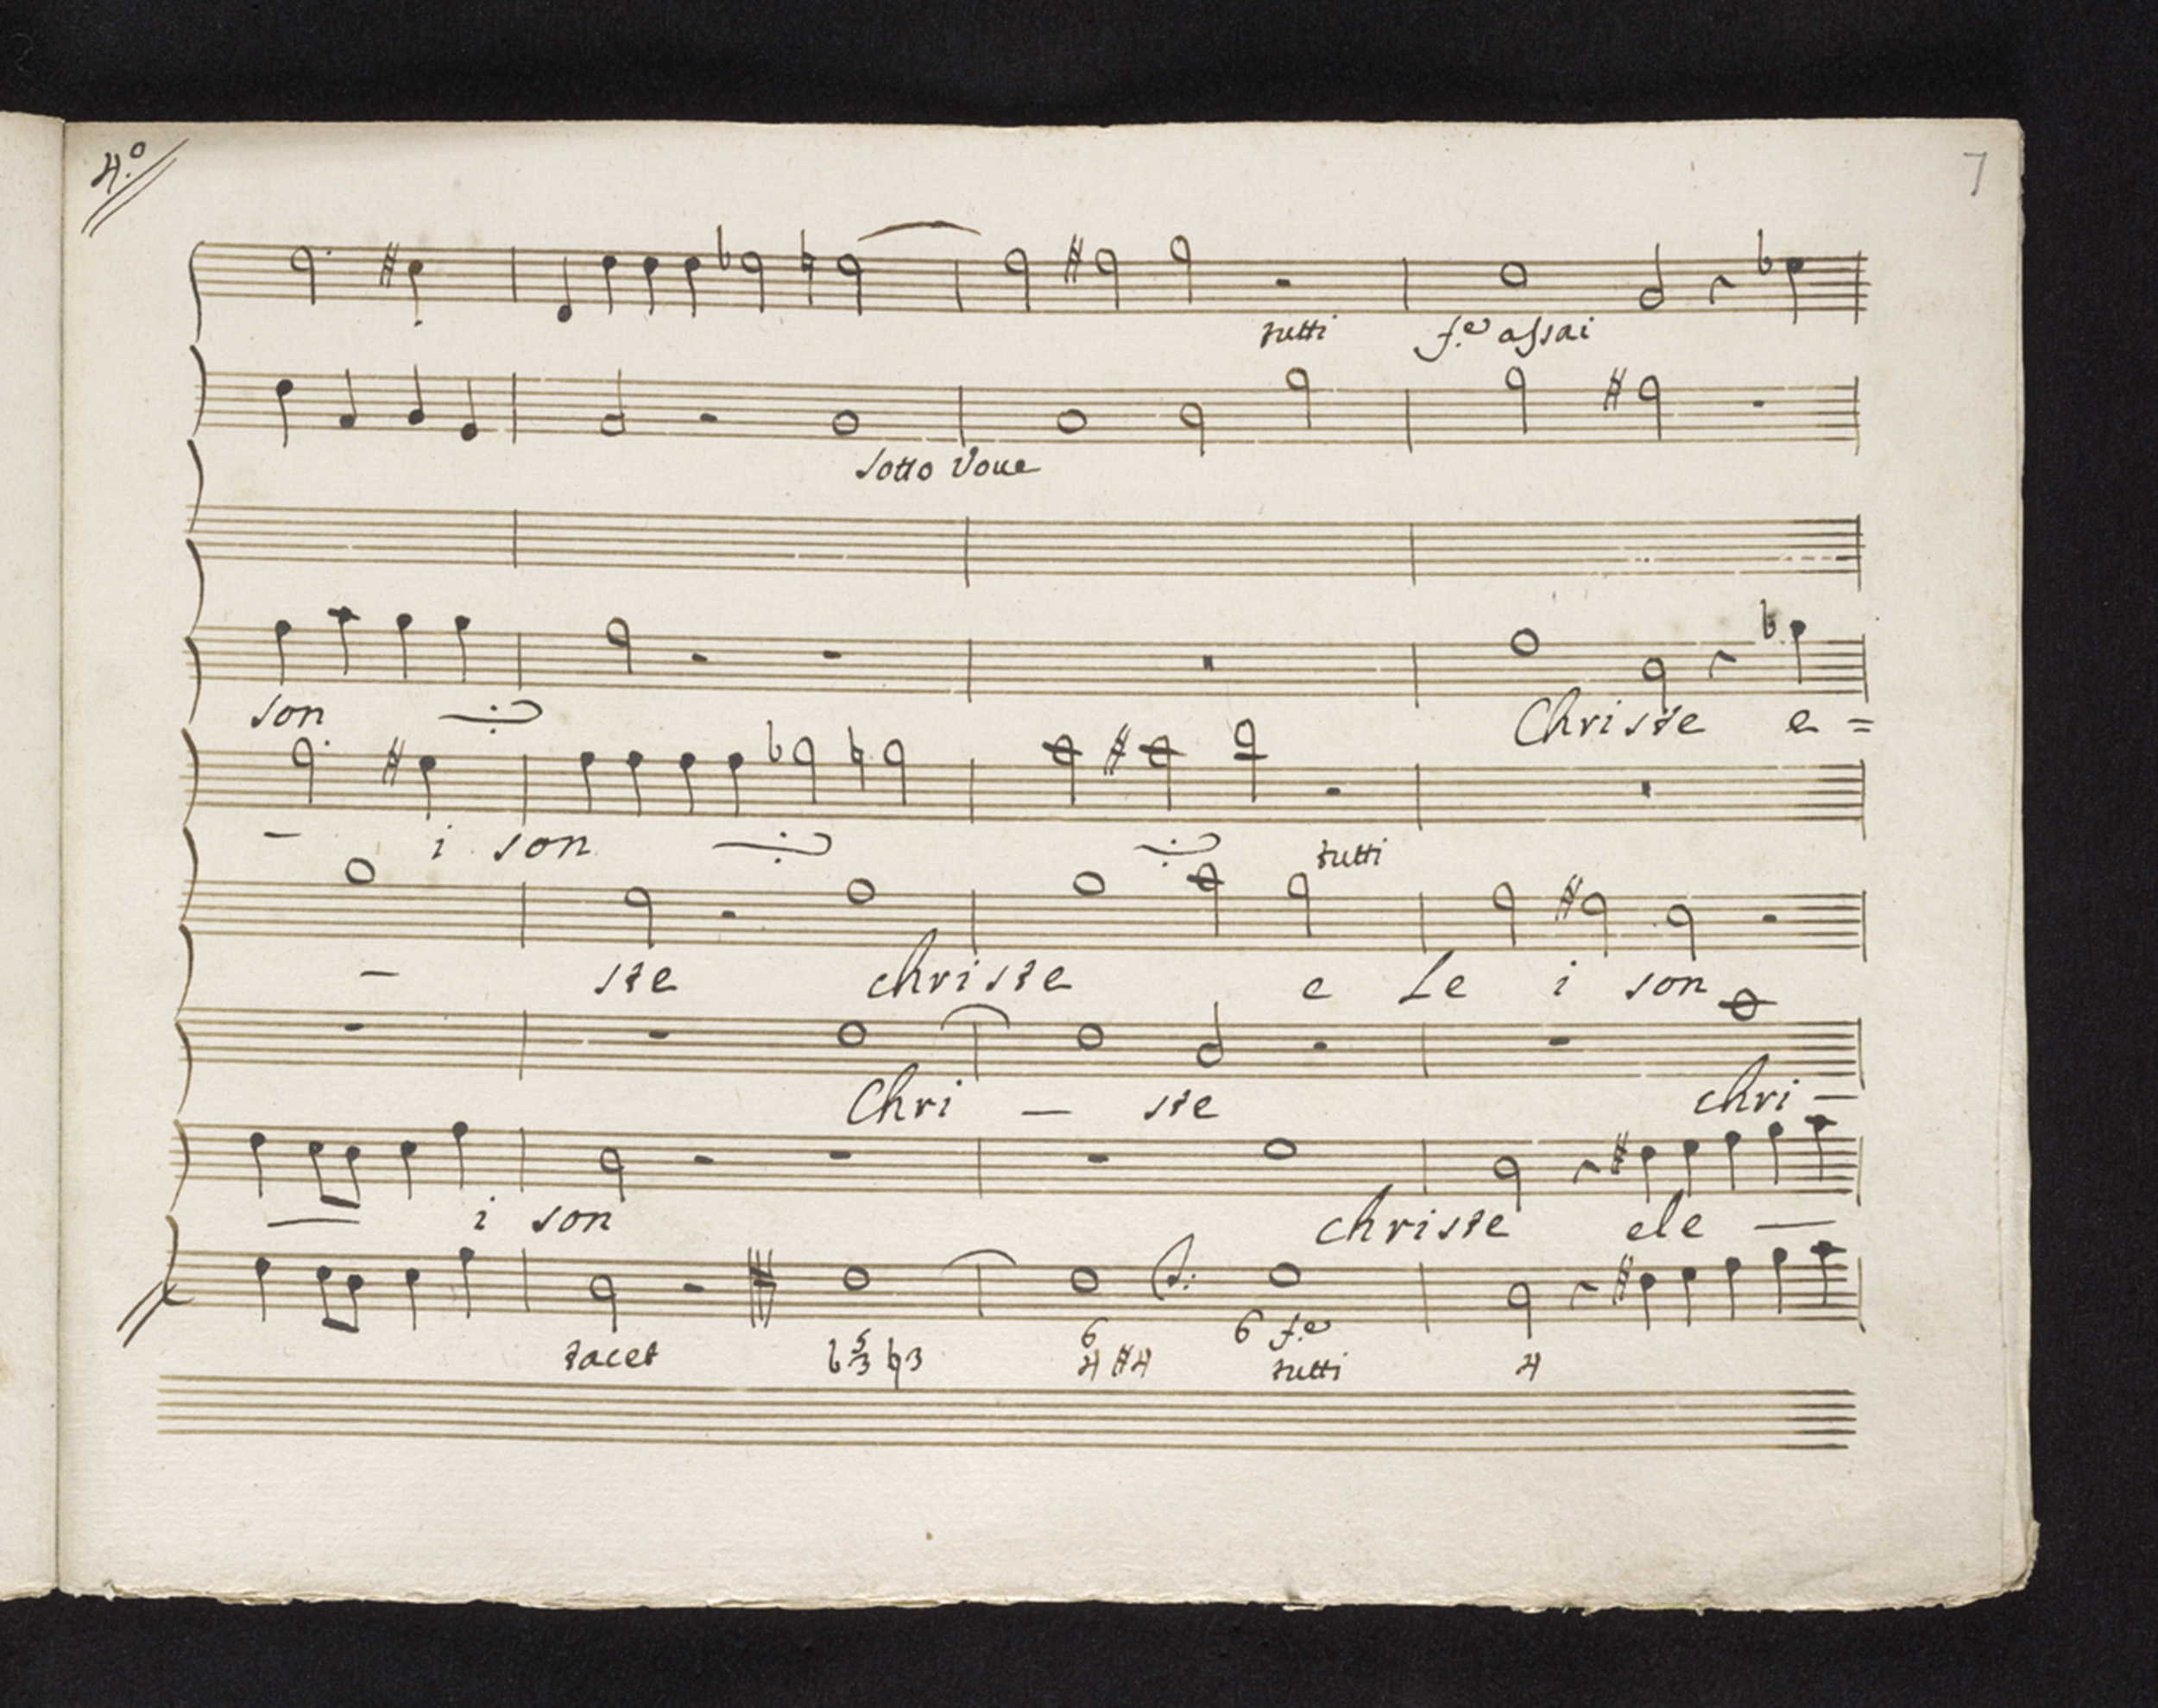 4.º
7
tutti f.e assai
sotto Voue
son Christe e =
- i son tutti
- ste christe e Le i son
Chri - ste chri -
- i son christe ele -
6 6 f.e
tacet b 5 3 ♮3 4 #4 tutti 4